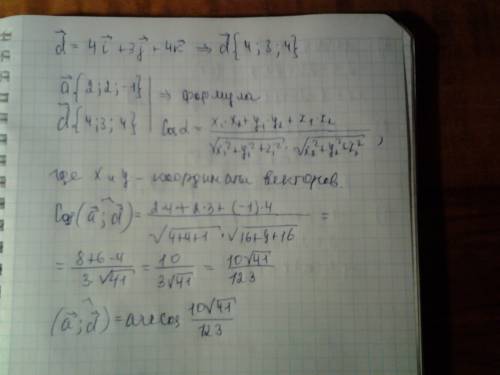 d⃗ = 4i⃗ + 3j⃗ + 4k⃗ ⇒ d⃗{4; 3; 4}
a⃗{2; 2; -1}
d⃗{4; 3; 4} | ⇒ формула
Cos α = (x₁·x₂+y₁·y₂+z₁·z₂)/(√(x₁²+y₁²+z₁²)·√(x₂²+y₂²+z₂²)),
где x и y – координаты векторов.
Cos(a⃗; d⃗) = (2·4+2·3+(-1)·4)/(√(4+4+1)·√(16+9+16)) =
= (8+6-4)/(3·√41) = 10/(3√41) = 10√41/123
(a⃗; d⃗) = arccos 10√41/123